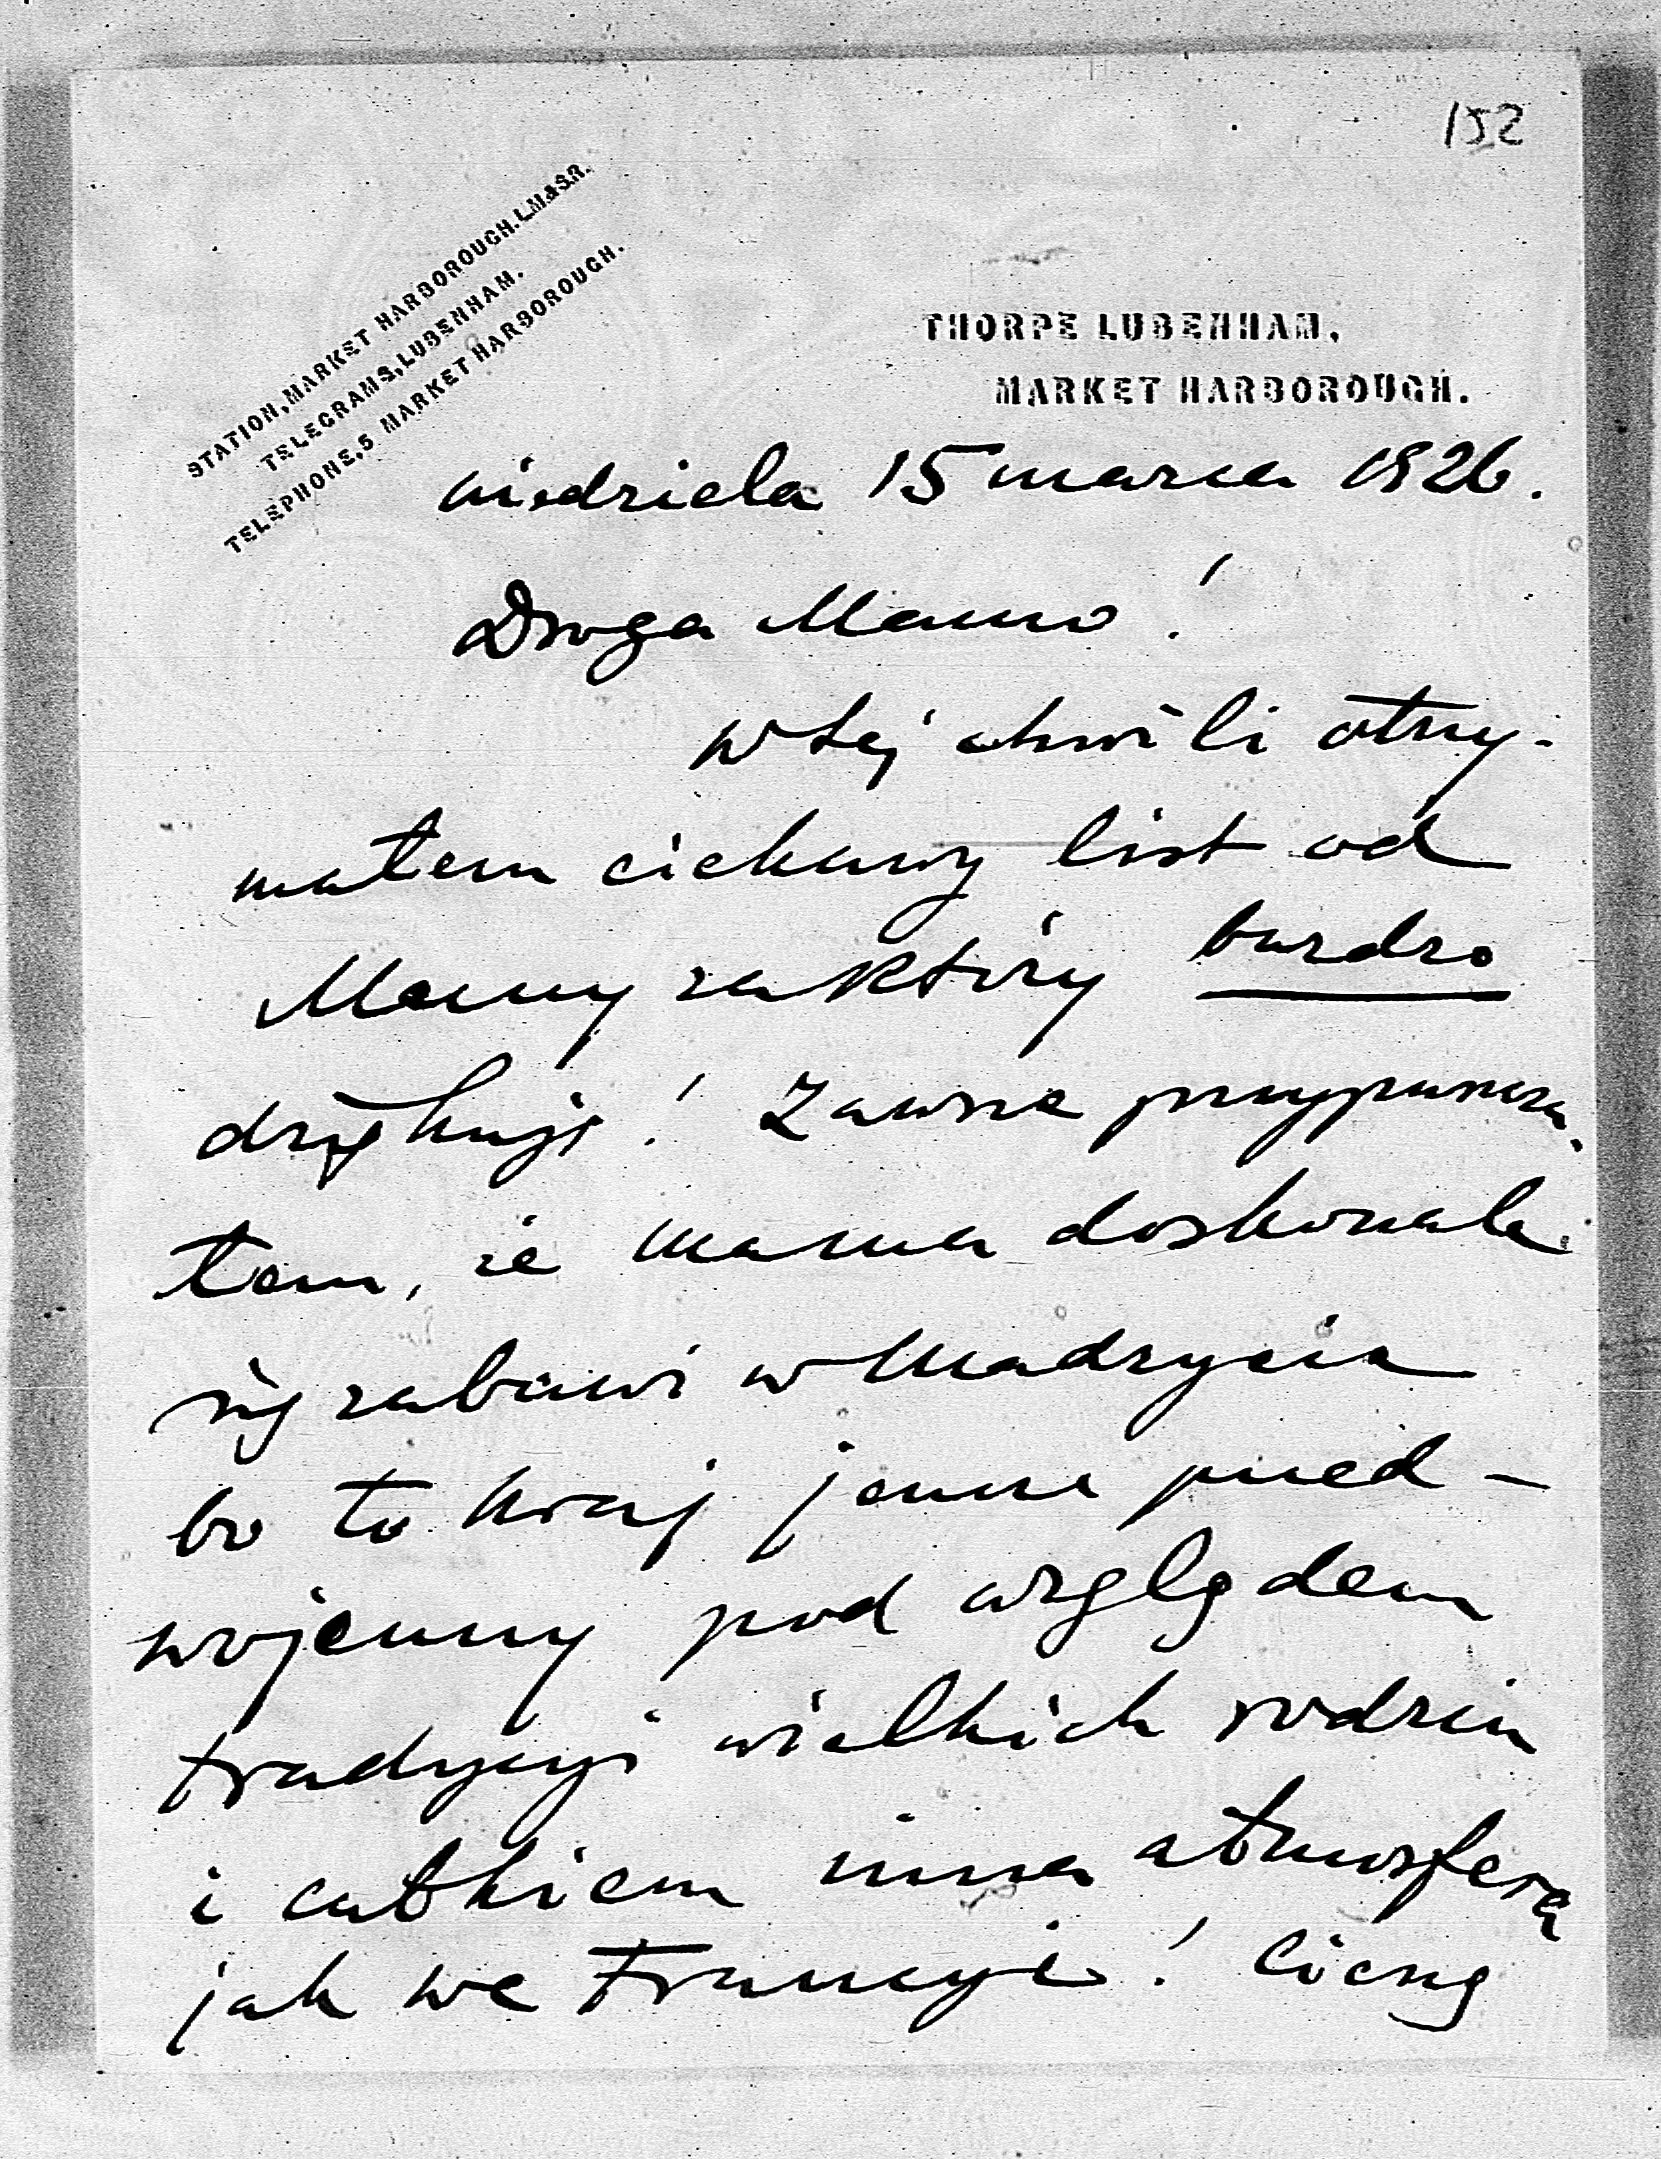 152
STATION, MARKET HARBOROUGH. L.M.&S.R.
TELEGRAMS, LUBENHAM.
TELEPHONE, 5 MARKET HARBOROUGH.
THORPE LUBENHAM,
MARKET HARBOROUGH.
niedziela 15 marca 1926.
Droga Mamo!
w tej chwili otrzy-
małem ciekawy list od
Mamy za który bardzo
dziękuję! Zawsze przypuszcza.
łem, że mama doskonale
się zabawi w Madrycie
bo to kraj jeszcze przed-
wojenny pod względem
tradycyi wielkich rodzin
i całkiem inna atmosfera
jak we Francyi! Cieszę